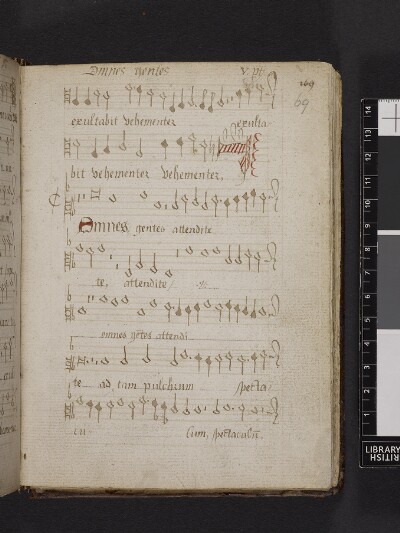 Omnes gentes V. pt.
269
69
exultabit vehementer exulta-
bit vehementer vehementer.
Omnes gentes attendite
te, attendite/ ://:
omnes gẽtes attendi
te ad tam pulchrum specta-
cu- lum, spectaculũ.
LIBRARY
BRITISH
1 2 3 4 5 6 7 8 9 10 11 12 13 14